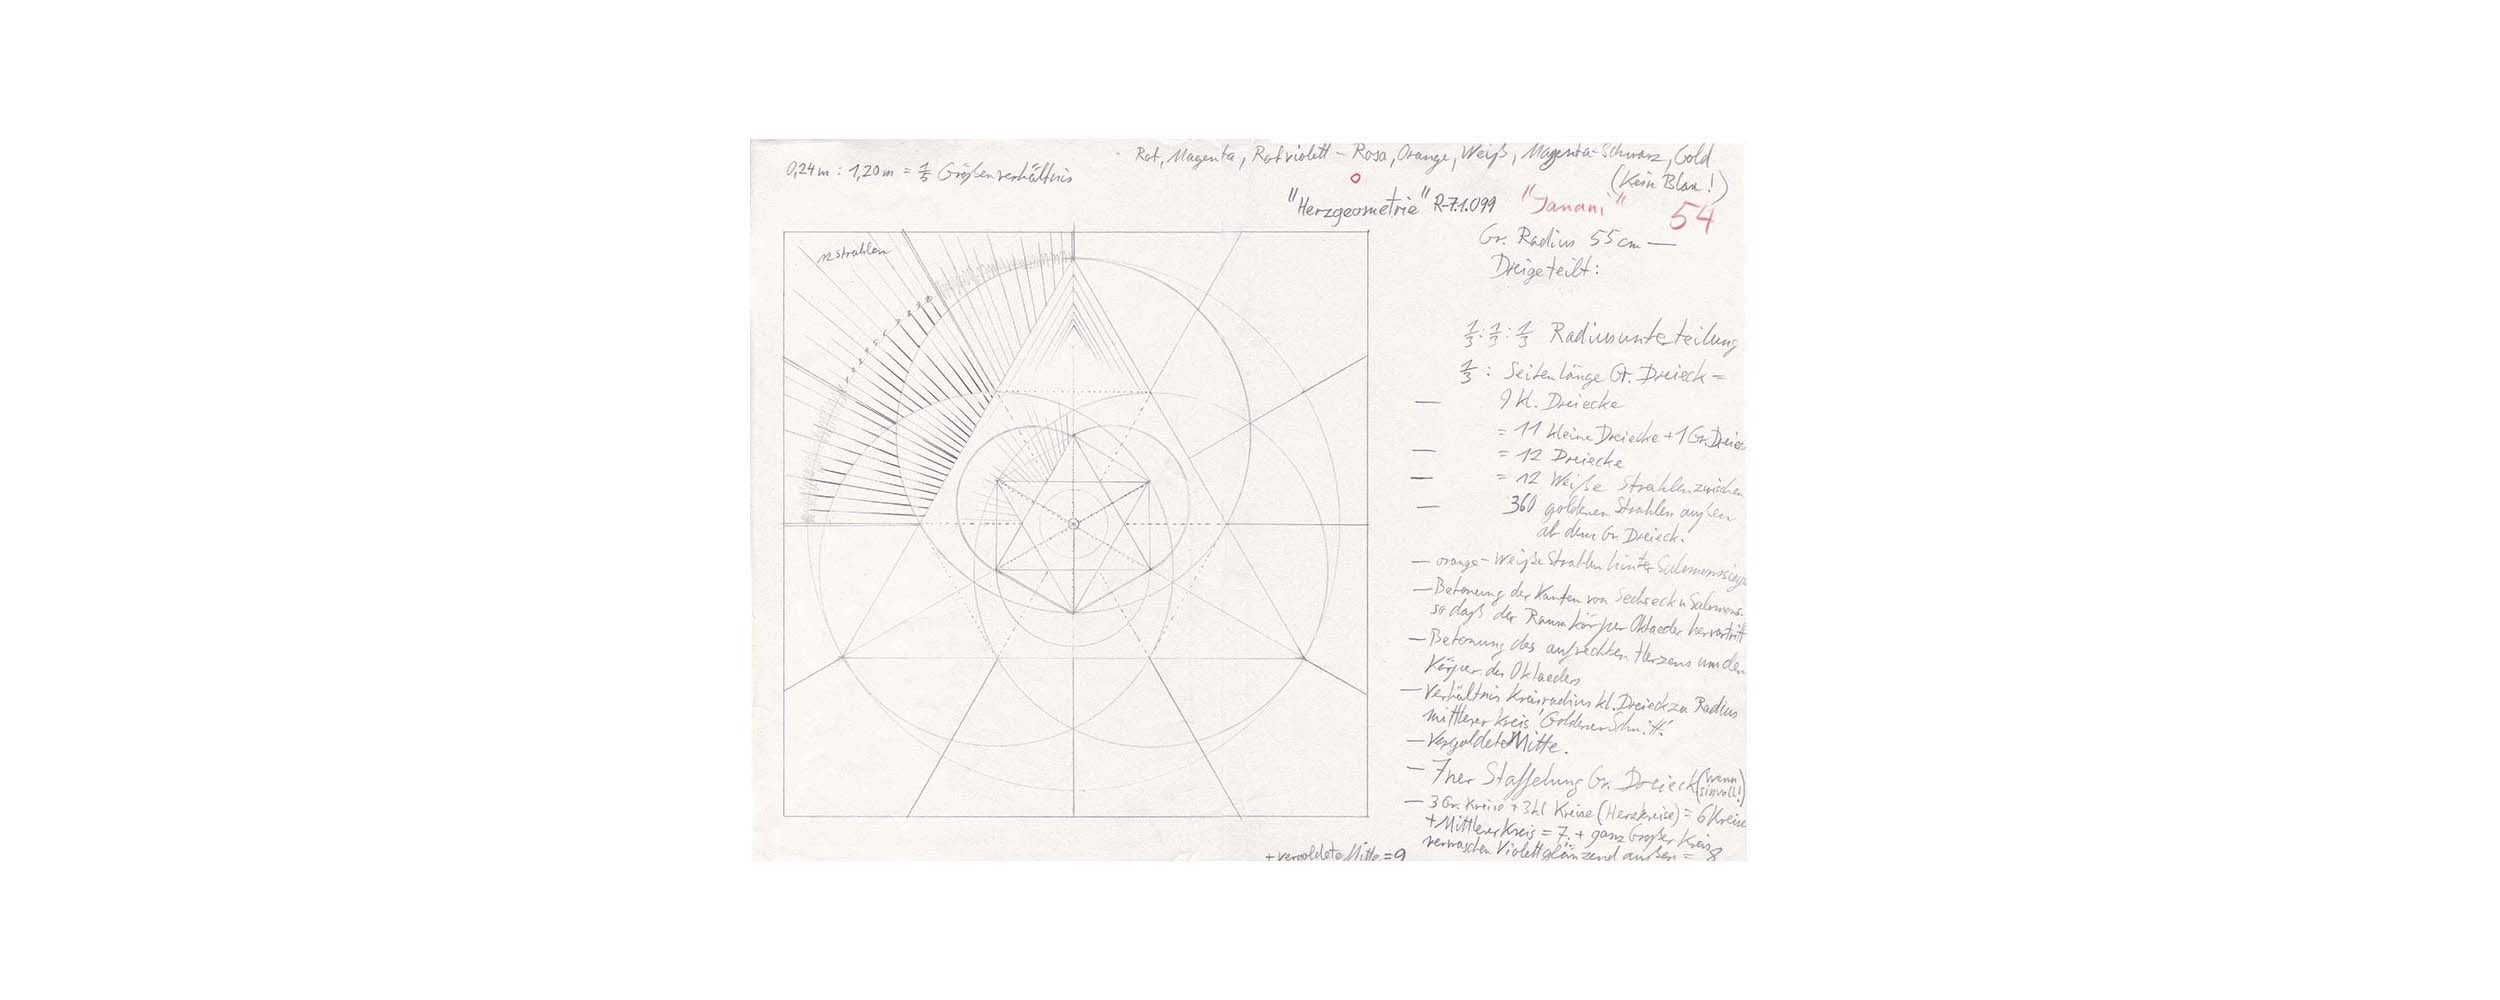 0,24m : 1,20m = 1/5 Größenverhältnis
Rot, Magenta, Rotviolett – Rosa, Orange, Weiß, Magenta-Schwarz, Gold
(Kein Blau!)
"Herzgeometrie" R-7.1.099 "Janani" 54
Gr. Radius 55cm —
Dreigeteilt:
12 Strahlen
1/3 : 1/3 : 1/3 Radiusunterteilung
1/3 : Seitenlänge Gr. Dreieck =
— 9 kl. Dreiecke
= 11 kleine Dreiecke + 1 Gr. Dreieck
— = 12 Dreiecke
— = 12 Weiße Strahlen zwischen
— 360 goldenen Strahlen außen
ab dem Gr. Dreieck.
— orange-Weiße Strahlen hinter
— Betonung der Kanten von Sechseck u Salomons.
so daß der Raumkörper Oktaeder hervortritt
— Betonung des aufrechten Herzens um den
Körper des Oktaeders
— Verhältnis Kreisradius kl. Dreieck zu Radius
mittlerer Kreis 'Goldener Schnitt'
— Vergoldete Mitte.
— 7ner Staffelung Gr. Dreieck (wenn
sinvoll!)
— 3 Gr. Kreise + 3 kl Kreise (Herzkreise) = 6 Kreise
+ Mittlerer Kreis = 7. + ganz Großer Kreis
verwaschen Violett glänzend außen = 8
+ vergoldete Mitte = 9